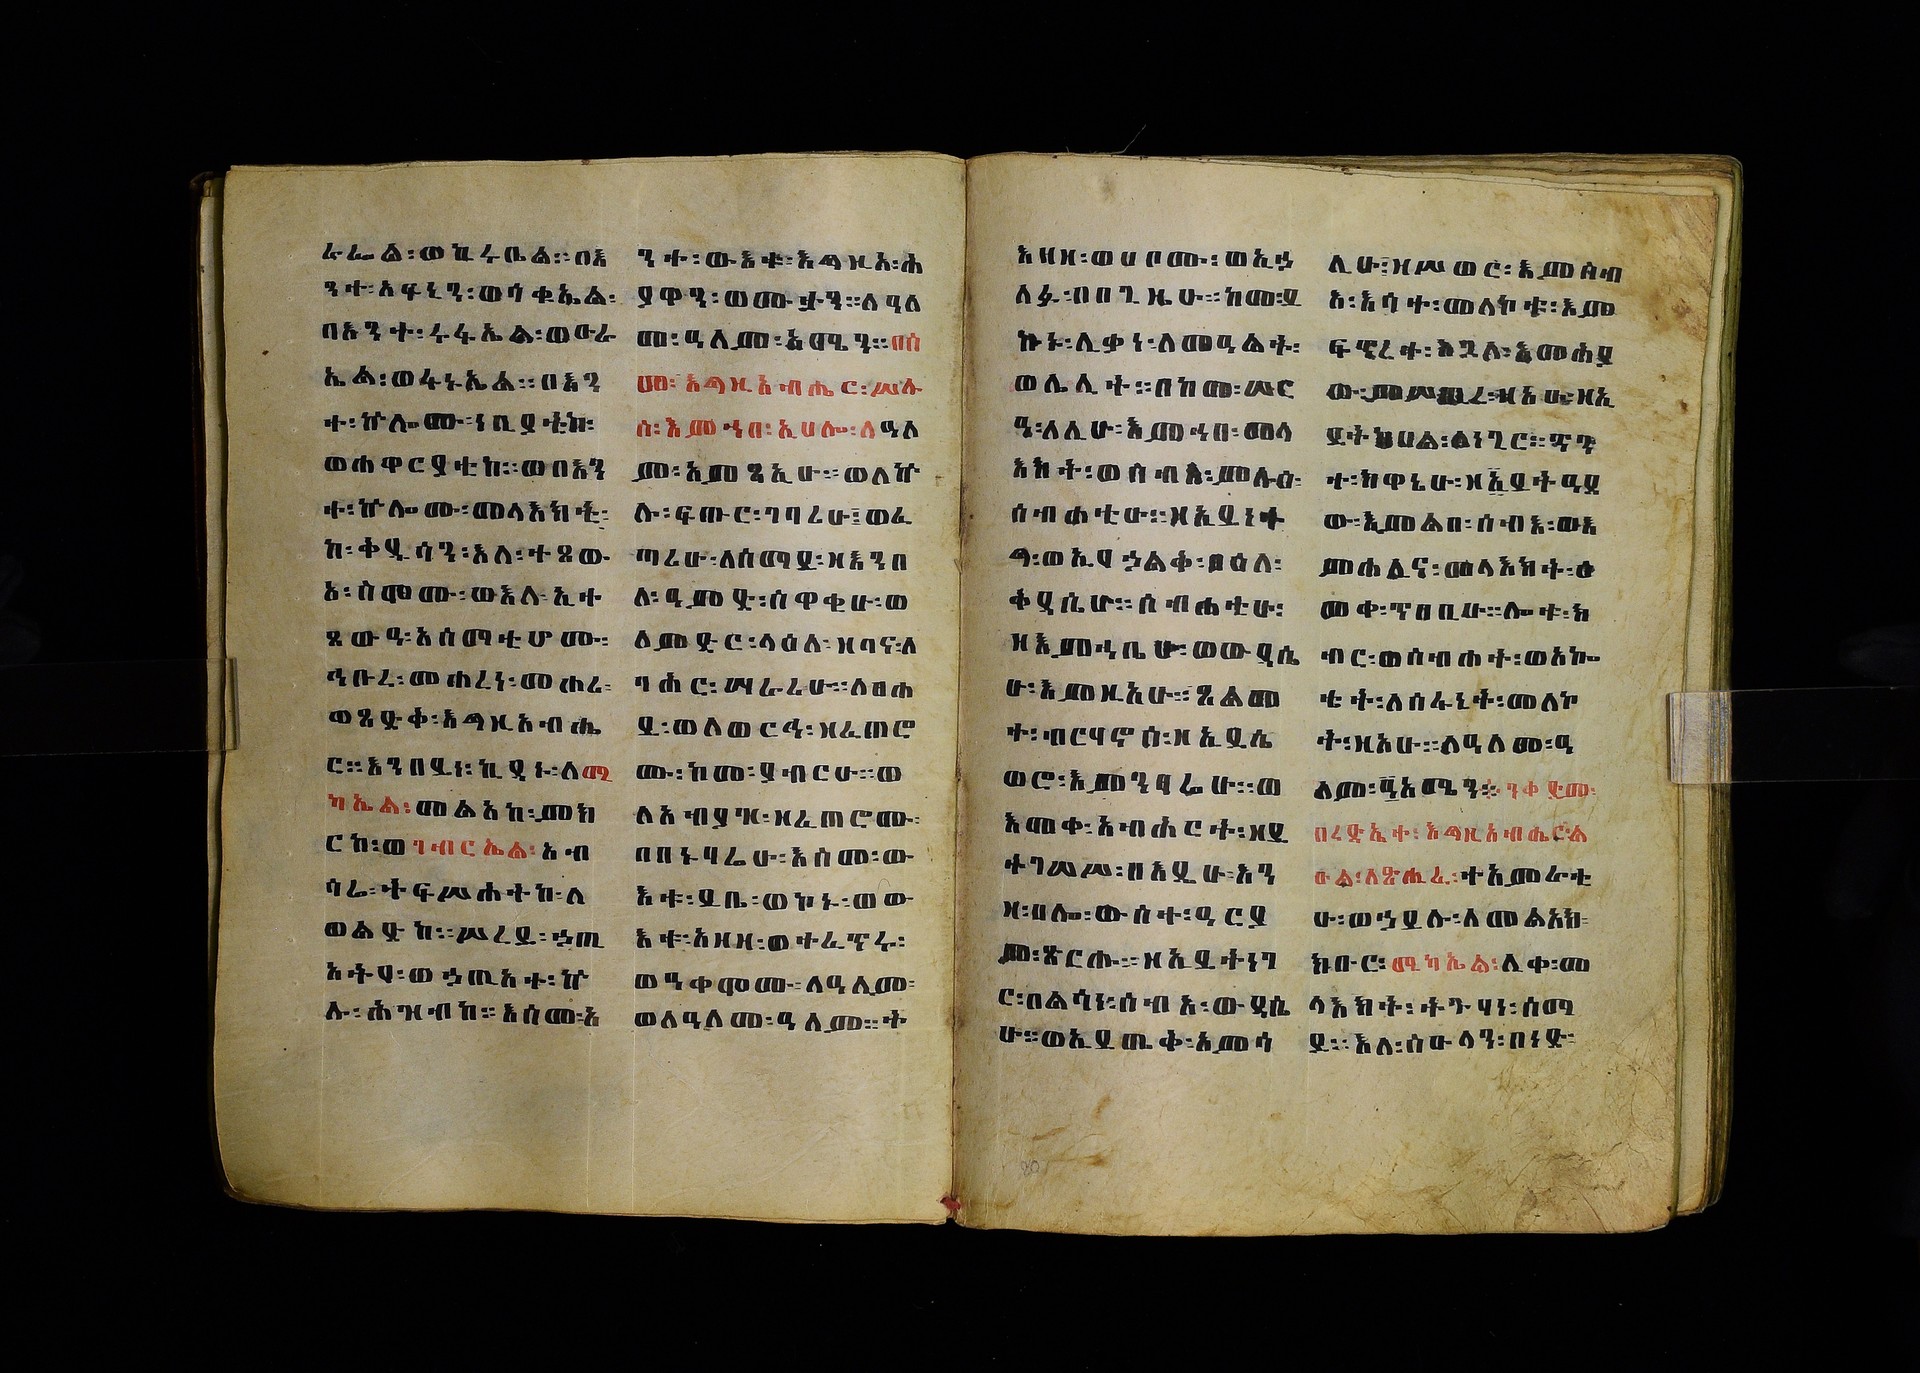 ፋሬል፡ወኪሩቤል።በእ
ንተ፡አፍኒን፡ወሳቁኤል፡
በእንተ፡ሩፋኤል፡ወውራ
ኤል፡ወፋኑኤል።በእን
ተ፡ኵሎሙ፡ነቢያቲከ፡
ወሐዋርያቲከ።ወበእን
ተ፡ኵሎሙ፡መላእክቲ
ከ፡ቅዱሳን፡እለ፡ተጸው
አ፡ስሞሙ፡ወእለ፡ኢተ
ጸውዓ፡አስማቲሆሙ።
ኅቡረ፡መሐረነ፡መሐረ፡
ወጸድቅ፡እግዚአብሔ
ር።እንበይነ፡ኪዳኑ፡ለሚ
ካኤል፡መልአከ፡ምክ
ርከ፡ወገብርኤል፡አብ
ሳሬ፡ትፍሥሐትከ፡ለ
ወልድከ።ሥረይ፡ኃጢ
አትየ፡ወኃጢአተ፡ኵ
ሉ፡ሕዝብከ።እስመ፡አ
ንተ፡ውእቱ፡እግዚአ፡ሕ
ያዋን፡ወሙታን።ለዓለ
መ፡ዓለም፡አሜን።በስ
መ፡እግዚአብሔር፡ሥሉ
ስ፡እምኀበ፡ኢሀሎ፡ለዓለ
ም፡አምጺኢሁ።ወለኵ
ሉ፡ፍጡር፡ገባሪሁ፤ወፈ
ጣሪሁ፡ለሰማይ፡ዘእንበ
ለ፡ዓምድ፡ሰዋቂሁ፡ወ
ለምድር፡ላዕለ፡ዝባና፡ለ
ባሕር፡ሣራሪሁ።ለፀሐ
ይ፡ወለወርኅ፡ዘፈጠሮ
ሙ፡ከመ፡ያብርሁ።ወ
ለአብያፂ፡ዘፈጠሮሙ፡
በበኑባሬሁ፡እስመ፡ው
እቱ፡ይቤ፡ወኮኑ፡ወው
እቱ፡አዘዘ፡ወተፈጥሩ፡
ወዓቀሞሙ፡ለዓለም፡
ወለዓለመ፡ዓለም።ት
እዛዘ፡ወሀቦሙ፡ወኢኃ
ለፉ፡በበጊዜሁ።ከመ፡ይ
ኩኑ፡ሊቃነ፡ለመዓልት፡
ወሌሊት።በከመ፡ሠር
ዓ፡ለሊሁ፡እምኀበ፡መላ
እክት፡ወሰብእ፡ምሉዕ፡
ስብሐቲሁ።ዘኢይነት
ግ፡ወኢየኃልቅ፡ፀዕለ፡
ቅዳሴሁ።ስብሐቲሁ፡
ዘእምኀቤሁ፡ወውዳሴ
ሁ፡እምዚአሁ።ጸልመ
ተ፡ብርሃኖስ፡ዘኢይሴ
ወሮ፡እምንባሬሁ።ወ
እመቀ፡አብሕርት፡ዘይ
ተገሠሥ፡በእዲሁ፡እን
ዘ፡ሀሎ፡ውስተ፡ዓርያ
ም፡ጽርሑ።ዘኢይትነገ
ር፡በልሳነ፡ሰብአ፡ውዳሴ
ሁ።ወኢይጤቅ፡አምሳ
ሊሁ፤ዘሥወር፡እምሰብ
አ፡እሳተ፡መለኮቱ፡እም
ፍጥረተ፡እጓለ፡እመሕያ
ው፡ምሥጢረ፡ዘአሁ፡ዘኢ
ይትከሀል፡ልነጊር።ጥን
ተ፡ክዋኔሁ፡ዘኢይትዓይ
ው፡እምልበ፡ሰብእ፡ወእ
ምሐሊና፡መላእክት፡ዕ
መቀ፡ጥበቢሁ።ሎቱ፡ክ
ብር፡ወስብሐት፡ወአኰ
ቴት፡ለስፋኒት፡መለኮ
ት፡ዚአሁ።ለዓለመ፡ዓ
ለም፡፬አሜን።ዓንቀድመ፡
በረድኤተ፡እግዚአብሔር፡ል
ዑል፡ለጽሒፈ፡ተአምራቲ
ሁ፡ወኃይሉ፡ለመልአክ፡
ክቡር፡ሚካኤል፡ሊቀ፡መ
ላእክት፡ቶንሃነ፡ሰማ
ይ።እለ፡ስውላን፡በነድ፡